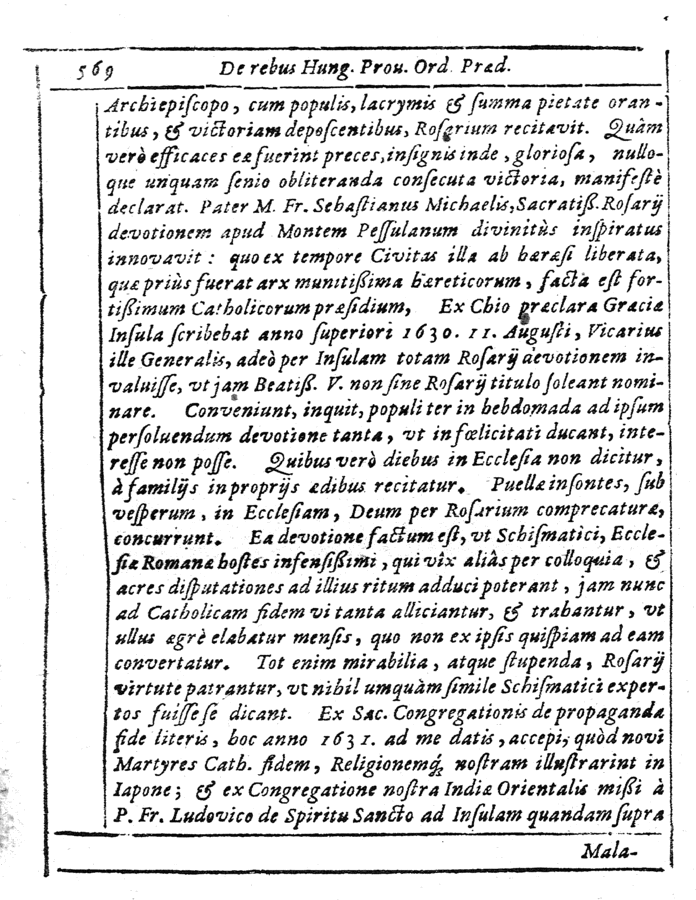 569 De rebus Hung. Prou. Ord. Præd.
Archiepiſcopo, cum populis, lacrymis & ſumma pietate oran-
tibus, & victoriam depoſcentibus, Roſarium recitavit. Quàm
verò efficaces eæ fuerint preces, inſignis inde, glorioſa, nullo-
que unquam ſenio obliteranda conſecuta victoria, manifeſtè
declarat. Pater M. Fr. Sebaſtianus Michaelis, Sacratiß. Roſarij
devotionem apud Montem Peſſulanum divinitùs inſpiratus
innovavit: quo ex tempore Civitas illa ab hæræſi liberata,
quæ priùs fuerat arx munitiſſima hæreticorum, facta eſt for-
tiſſimum Catholicorum præſidium, Ex Chio præclara Græciæ
Inſula ſcribebat anno ſuperiori 1630. 11. Auguſti, Vicarius
ille Generalis, adeò per Inſulam totam Roſarij devotionem in-
valuiſſe, vt jam Beatiß. V. non ſine Roſarij titulo ſoleant nomi-
nare. Conveniunt, inquit, populi ter in hebdomada ad ipſum
perſoluendum devotione tanta, vt infœlicitati ducant, inte-
reſſe non poſſe. Quibus verò diebus in Eccleſia non dicitur,
à familijs in proprijs ædibus recitatur. Puellæ inſontes, ſub
veſperum, in Eccleſiam, Deum per Roſarium comprecaturæ,
concurrunt. Ea devotione factum eſt, vt Schiſmatici, Eccle-
ſiæ Romanæ hoſtes infenſiſſimi, qui vix aliàs per colloquia, &
acres diſputationes ad illius ritum adduci poterant, jam nunc
ad Catholicam fidem vi tanta alliciantur, & trahantur, vt
ullus ægrè elabatur menſis, quo non ex ipſis quiſpiam ad eam
convertatur. Tot enim mirabilia, atque ſtupenda, Roſarij
virtute patrantur, vt nihil umquàm ſimile Schiſmatici exper-
tos fuiſſe ſe dicant. Ex Sac. Congregationis de propaganda
fide literis, hoc anno 1631. ad me datis, accepi, quòd novi
Martyres Cath. fidem, Religionemq́; noſtram illuſtrarint in
Iapone; & ex Congregatione noſtra Indiæ Orientalis miſſi à
P. Fr. Ludovico de Spiritu Sancto ad Inſulam quandam ſupra
Mala-